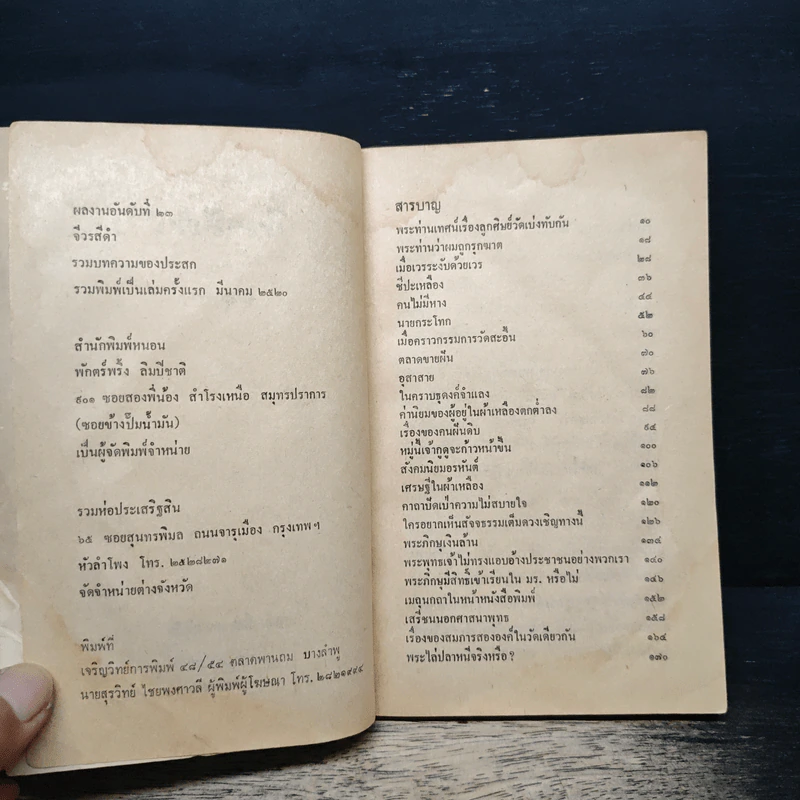 ผลงานอันดับที่ ๒๓
จีวรสีดำ
รวมบทความของประสก
รวมพิมพ์เป็นเล่มครั้งแรก มีนาคม ๒๕๒๐
สำนักพิมพ์หนอน
พักตร์พริ้ง ลิมปิชาติ
๙๐๑ ซอยสองพี่น้อง สำโรงเหนือ สมุทรปราการ
(ซอยข้างปั๊มน้ำมัน)
เป็นผู้จัดพิมพ์จำหน่าย
รวมห่อประเสริฐสิน
๖๕ ซอยสุนทรพิมล ถนนจารุเมือง กรุงเทพฯ
หัวลำโพง โทร. ๒๕๒๘๒๗๑
จัดจำหน่ายต่างจังหวัด
พิมพ์ที่
เจริญวิทย์การพิมพ์ ๔๘/๕๔ ตลาดพานถม บางลำพู
นายสุรวิทย์ ไชยพงศาวลี ผู้พิมพ์ผู้โฆษณา โทร. ๒๘๒๑๙๙๔
สารบาญ
พระท่านเทศน์เรื่องลูกศิษย์วัดเบ่งทับกัน ๑๐
พระท่านว่าผมถูกรุกฆาต ๑๘
เมื่อเวรระงับด้วยเวร ๒๘
ชีปะเหลือง ๓๖
คนไม่มีหาง ๔๔
นายกระโทก ๕๒
เมื่อคราวกรรมการวัดสะอื้น ๖๐
ตลาดขายผืน ๗๐
อุสาสาย ๗๖
ในคราบธุดงค์จำแลง ๘๒
ค่านิยมของผู้อยู่ในผ้าเหลืองตกต่ำลง ๘๘
เรื่องของคนผืนดิบ ๙๔
หมู่นี้เจ้ากูดูจะก้าวหน้าขึ้น ๑๐๐
สังคมนิยมอรหันต์ ๑๐๖
เศรษฐีในผ้าเหลือง ๑๑๒
คาถาปัดเป่าความไม่สบายใจ ๑๒๐
ใครอยากเห็นสัจจธรรมเต็มดวงเชิญทางนี้ ๑๒๖
พระภิกษุเงินล้าน ๑๓๔
พระพุทธเจ้าไม่ทรงแอบอ้างประชาชนอย่างพวกเรา ๑๔๐
พระภิกษุมีสิทธิ์เข้าเรียนใน มร. หรือไม่ ๑๔๖
เมถุนกถาในหน้าหนังสือพิมพ์ ๑๕๒
เสรีชนนอกศาสนาพุทธ ๑๕๘
เรื่องของสมภารสององค์ในวัดเดียวกัน ๑๖๔
พระไล่ปลาหนีจริงหรือ? ๑๗๐